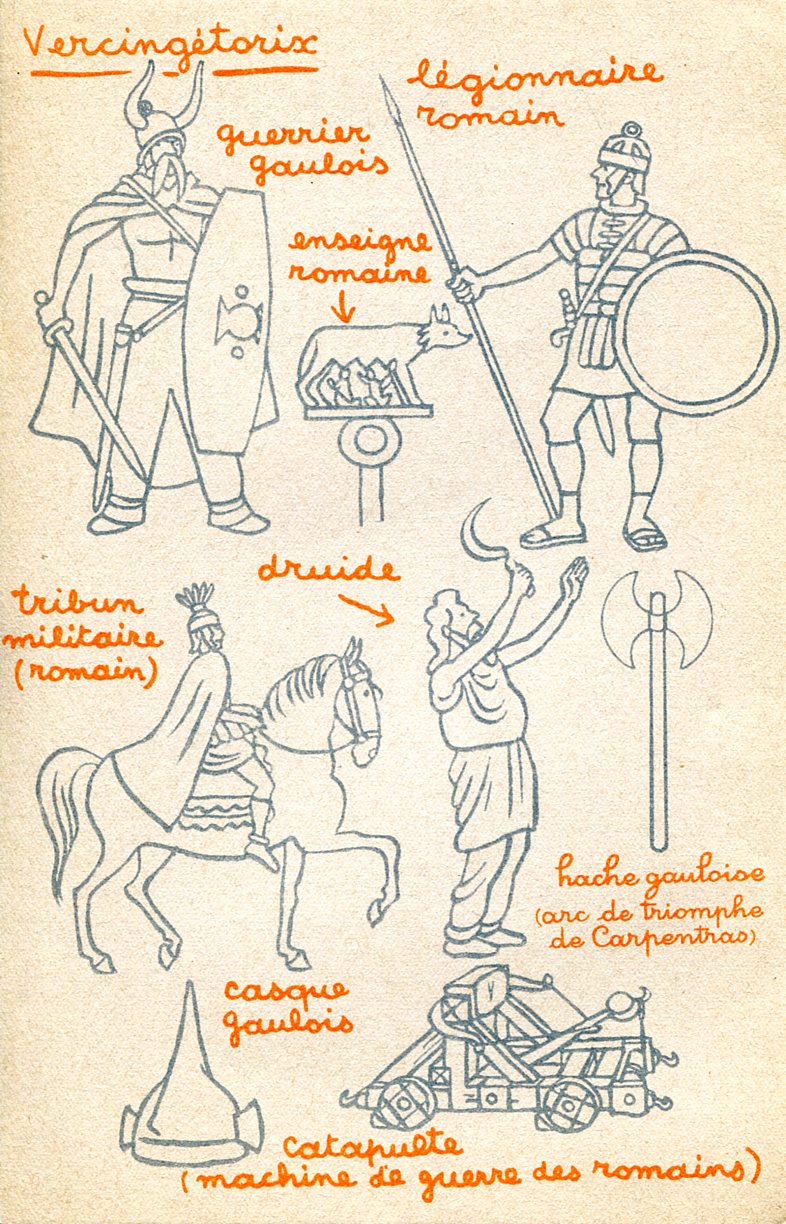 Vercingétorix
légionnaire
romain
guerrier
gaulois
enseigne
romaine
druide
tribun
militaire
(romain)
hache gauloise
(arc de triomphe
de Carpentras)
casque
gaulois
catapulte
(machine de guerre des romains)